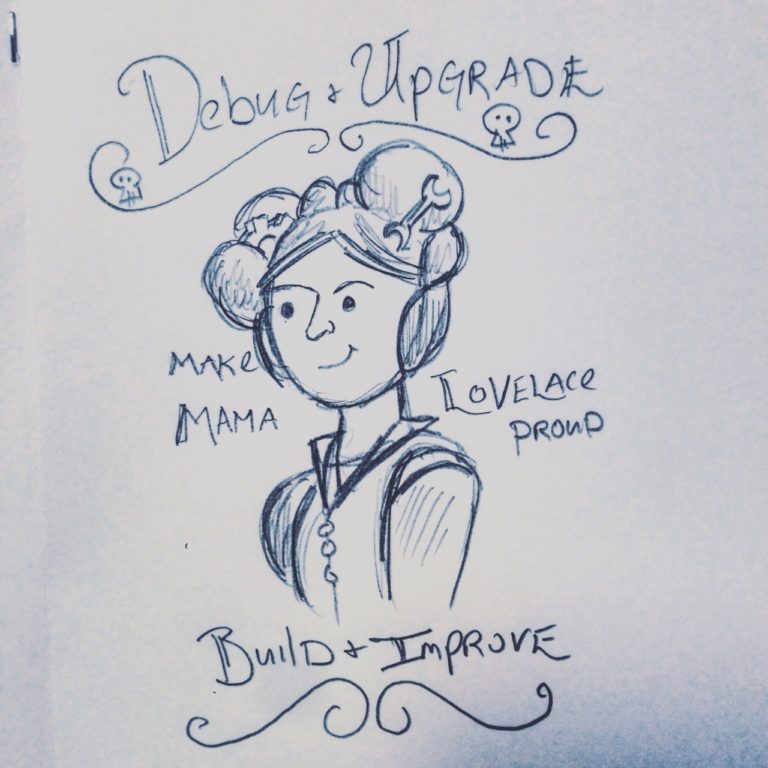 Debug + Upgrade
Make
Mama
Lovelace
Proud
Build + Improve